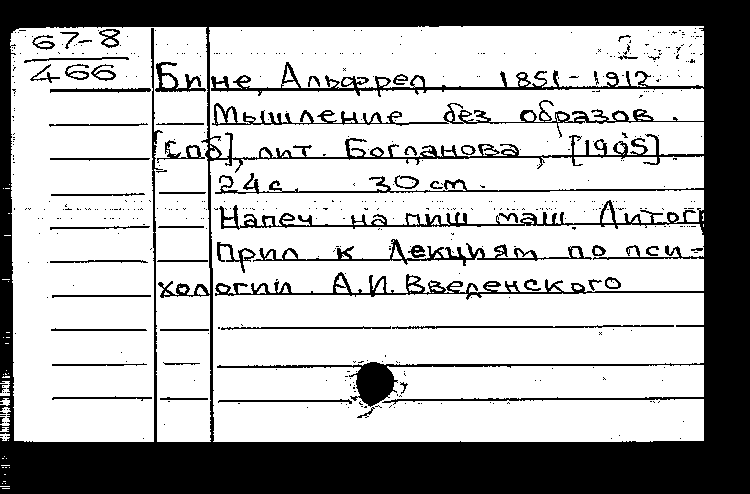 67-8
466
Бине, Альфред. 1851-1912.
Мышление без образов.
[Спб], лит. Богданова, [1905].
24 с. 30 см.
Напеч. на пиш. маш. Литогр
Прил. к Лекциям по пси-
хологии. А.И. Введенского